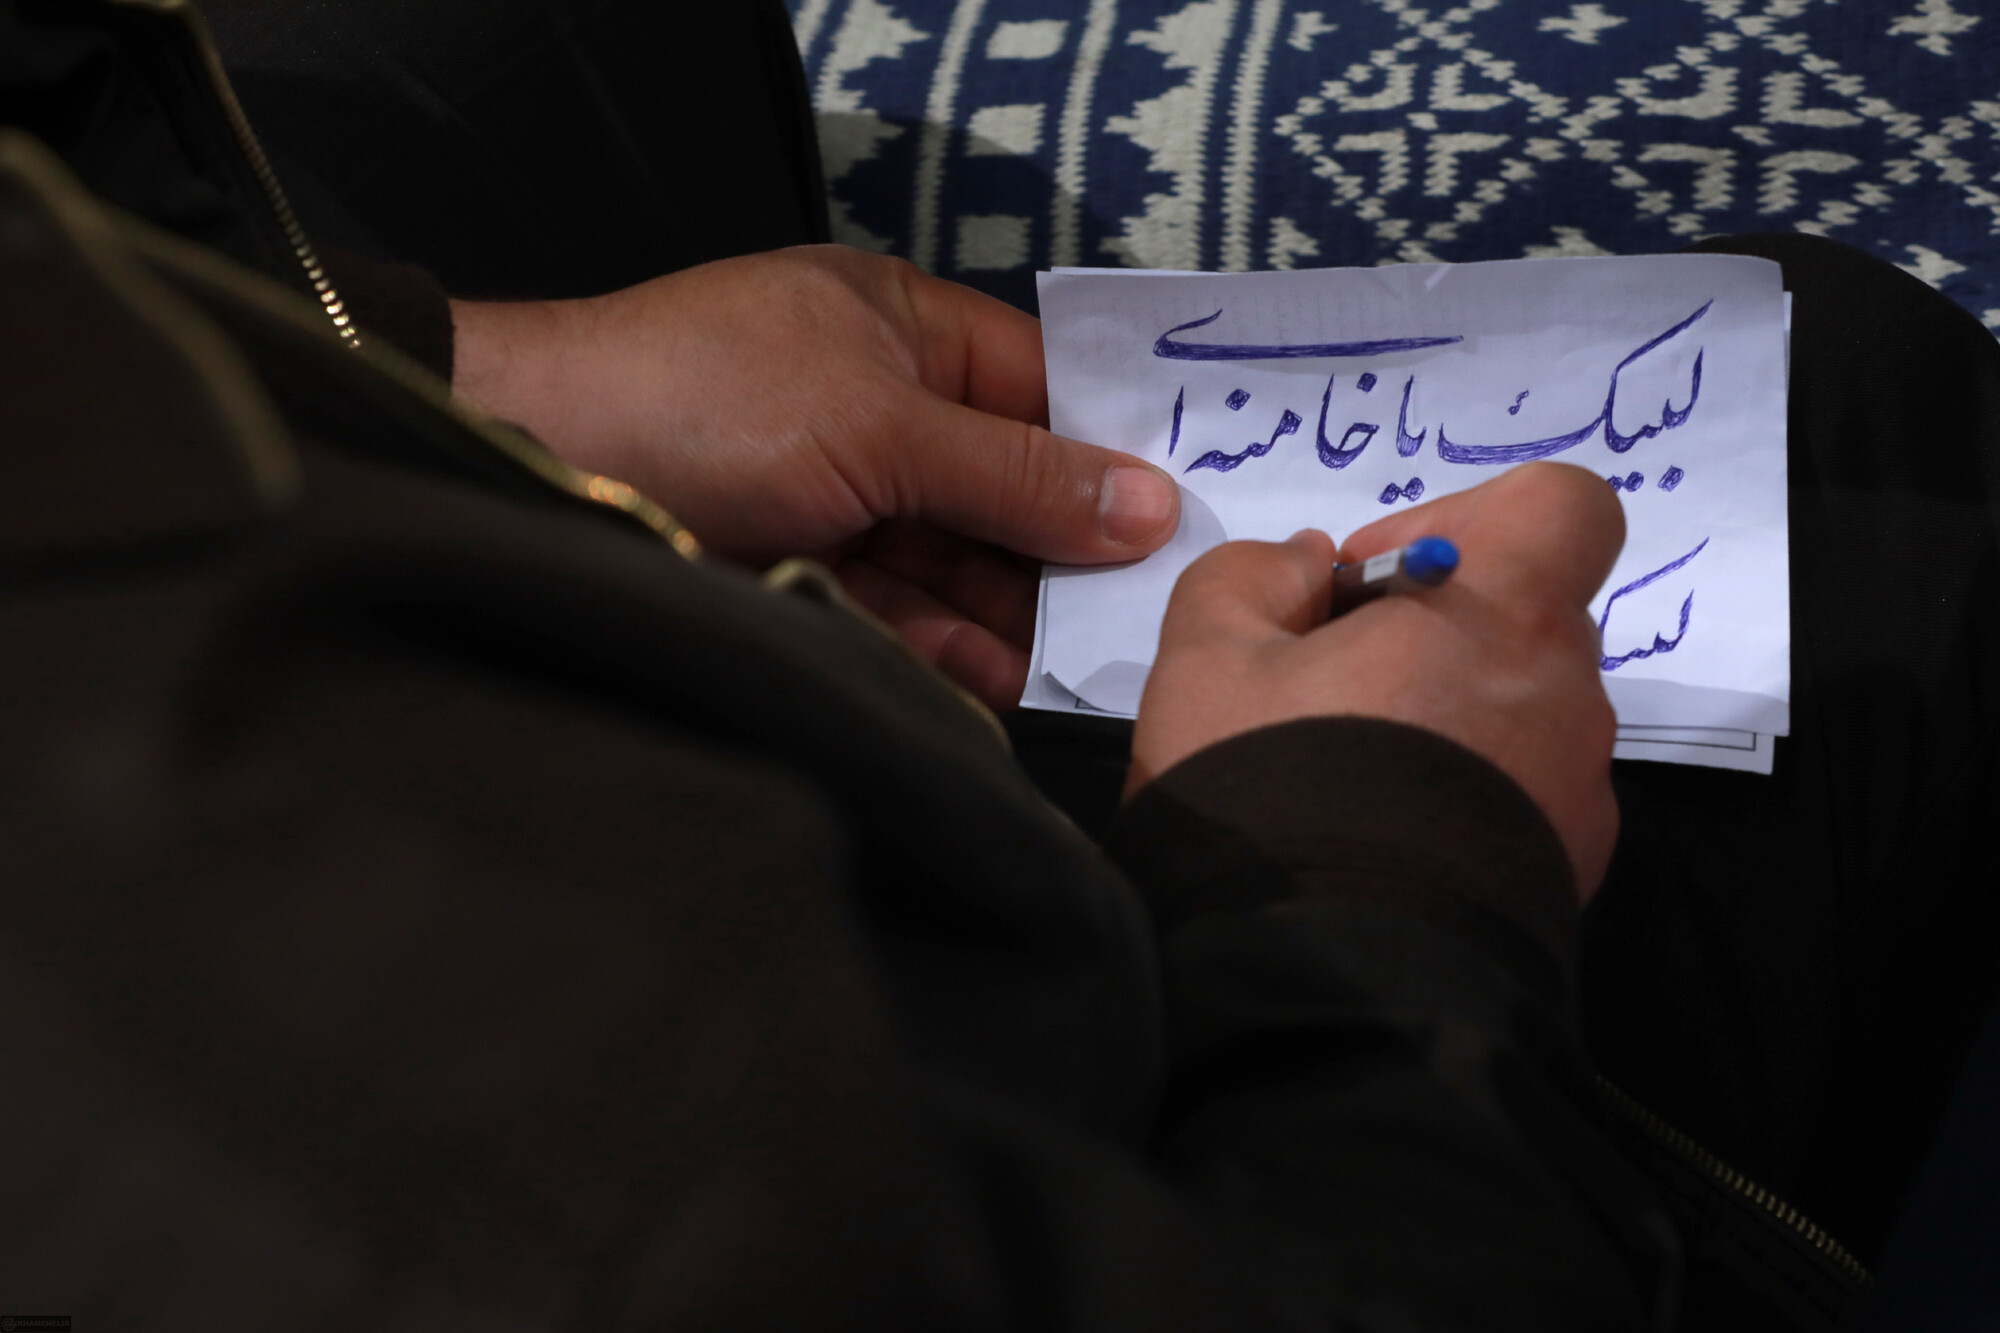 لبیک یا خامنه ای
لبیک
KHAMENEI.IR